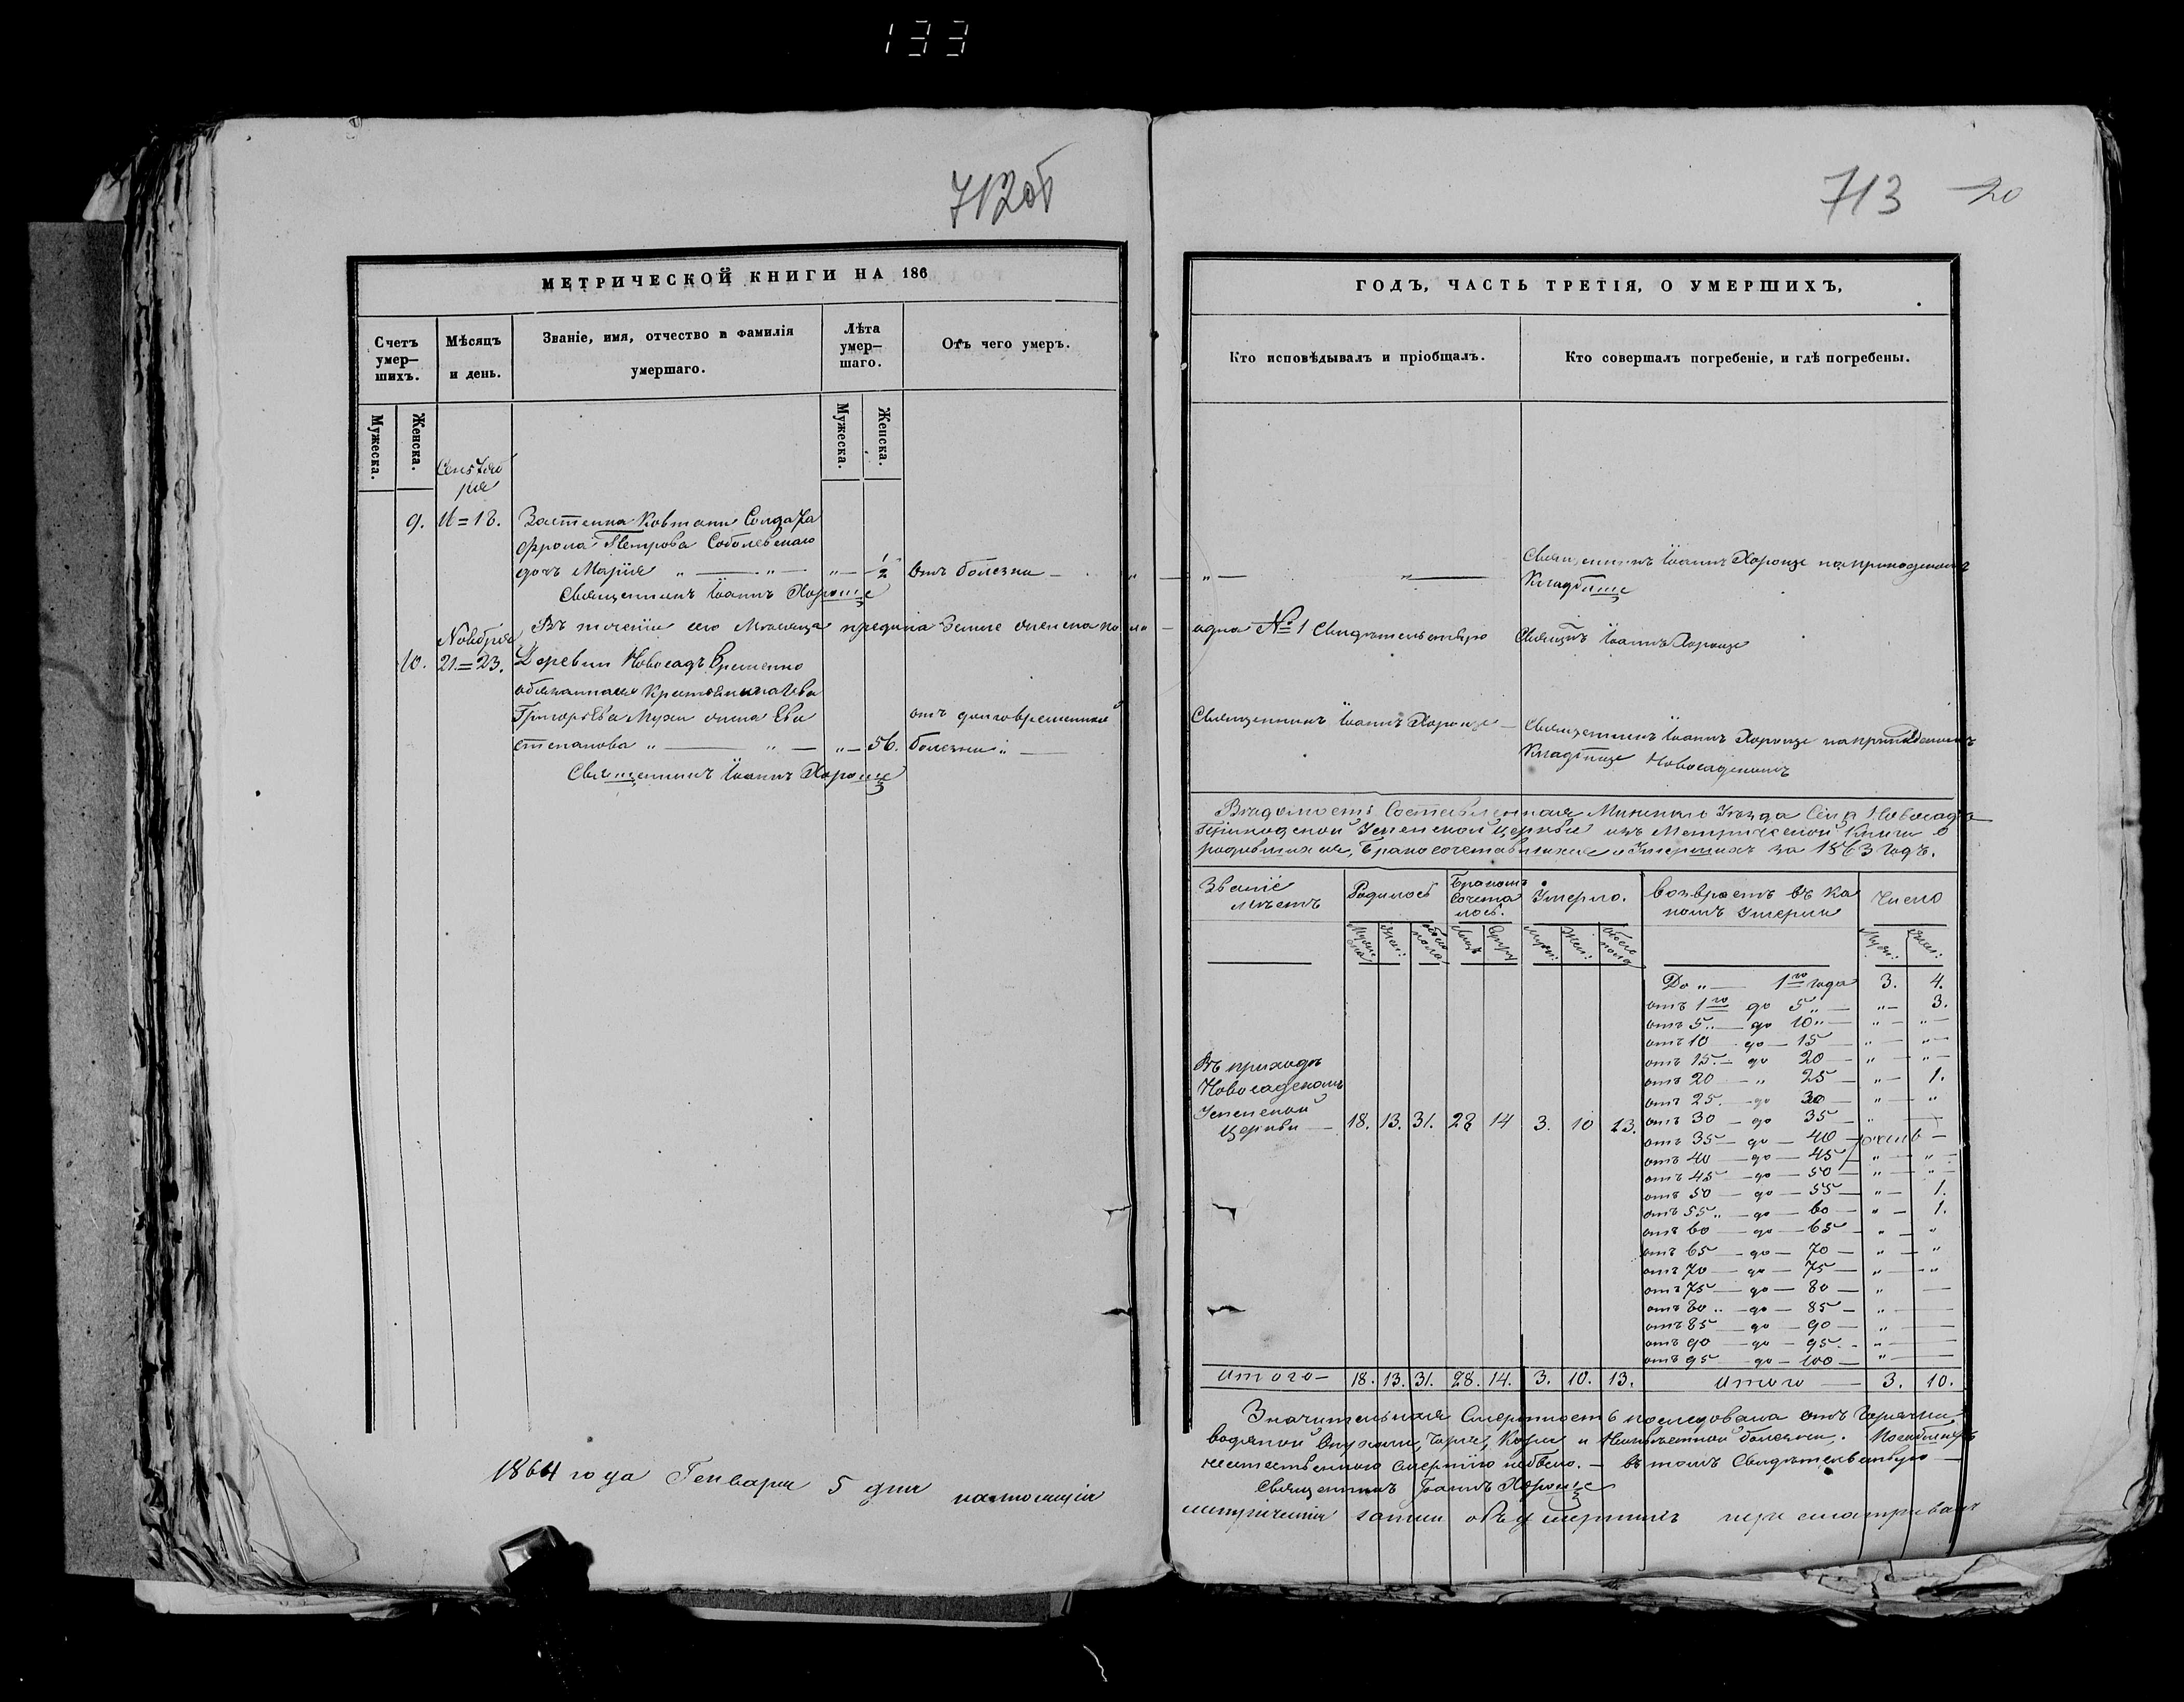 133
712об
МЕТРИЧЕСКОЙ КНИГИ НА 186
Счетъ умер-шихъ.
Мѣсяцъ и день.
Званіе, имя, отчество и фамилія умершаго.
Лѣта умер-шаго.
Отъ чего умеръ.
Мужеска.
Женска.
Мужеска.
Женска.
9. 11=13. Застенка Ковтани Солдата
Фрола Петрова Соболевскаго
дочь Марія " — " — " — 1/2 Отъ болезни —
Священникъ Іоаннъ Хороше
Въ теченіи сего Месяца
Новебря
10. 21=23. Деревни Новосадъ Временно
обязаннаго Крестьянина
Григорьева Мухи жена Ева
отъ долговременной
Степанова " — " — " — 56. болезни " —
Священникъ Іоаннъ Хороше
1864 года Генваря 5 дня настоящія
713 20
ГОДЪ, ЧАСТЬ ТРЕТІЯ, О УМЕРШИХЪ,
Кто исповѣдывалъ и пріобщалъ.
Кто совершалъ погребеніе, и гдѣ погребены.
" — " —
Священникъ Іоаннъ Хороше на приходскомъ
Кладбище
одна № 1 Свидетельствую Іоаннъ Хороше
Священникъ Іоаннъ Хороше —
Священникъ Іоаннъ Хороше на приходскомъ
Кладбище Новосадскомъ
Ведомость Составленная Минскаго Уезда Села Новосада
Приходской Успенской церкви изъ Метрической Книги о
родившихся, Бракосочетавшихся и Умершихъ за 1863 Годъ.
Званіе местъ
Родилось
Бракомъ Сочеталось.
Умерло.
Возврастъ въ каномъ Умерли
Число
До " — 1го года 3. 4.
отъ 1го до 5 " — " — 3.
отъ 5 " — до 10 " — " — " —
отъ 10 — до — 15 — " — " —
отъ 15. — до 20 — " — " —
отъ 20 — " 25 — " — 1.
отъ 25. — до 30 — " — "
отъ 30 — до 35 — " —
отъ 35 — до — 40 —
отъ 40 — до — 45 — " — " —
отъ 45 — до — 50 — " — " —
отъ 50 — до — 55 — " — 1.
отъ 55 " — до — 60 — " — 1.
отъ 60 — до — 65 — " — "
отъ 65 — до — 70 — " — "
отъ 70 — до — 75 — " — "
отъ 75 — до — 80 — " —
отъ 80 " — до — 85 — " —
отъ 85 — до — 90 — " —
отъ 90 — до — 95 — " —
отъ 95 — до — 100 — " —
Въ приходе
Новосадскомъ
Успенской
Церкви — 18. 13. 31. 28 14 3. 10 13.
Итого — 18. 13. 31. 28. 14. 3. 10. 13. Итого — 3. 10.
Значительная Смертность последовала отъ Горячки
водяной Опухоли, Кори и Неизвестной болезни.
Смертію небыло. — въ томъ Свидетельствую —
Священникъ Іоаннъ Хороше
метрическія объ умершихъ пересматривалъ